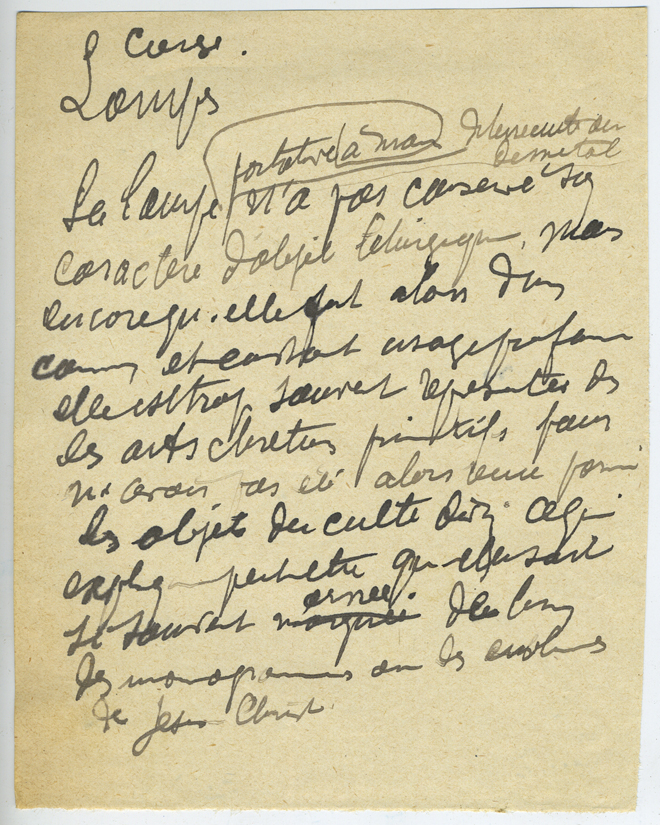 L Corse.
Lampes
portative à main de terre cuite ou
de métal
La lampe n'a pas conservé son
caractère d'objet liturgique, mais
encore qu'elle fut alors d'un
et constant usage profane
elle est trop souvent représentée
les arts chrétiens primitifs pour
n'avoir pas été alors tenue parmi
les objets du culte ce qui
explique peut-être qu'elle soit
si souvent ornée
des monogrammes ou des emblèmes
de Jésus Christ